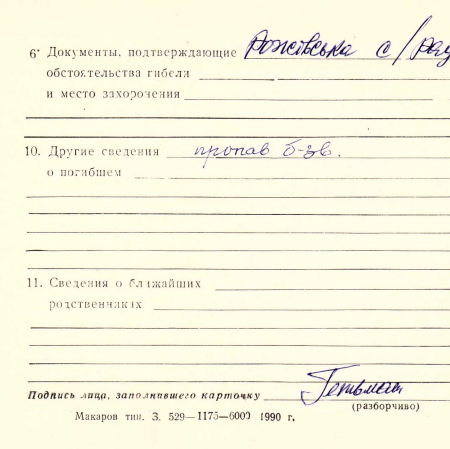 6. Документы, подтверждающие Рожівська с/рад
обстоятельства гибели
и место захоронения
10. Другие сведения пропав б-зв.
о погибшем
11. Сведения о ближайших
родственниках
Подпись лица, заполнившего карточку Гетьман
(разборчиво)
Макаров тип. З. 529—1175—6000 1990 г.